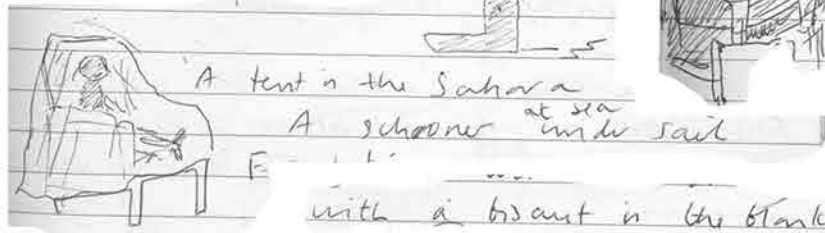 A tent in the Sahara
A schooner at sea under sail
with a biscuit in the blank